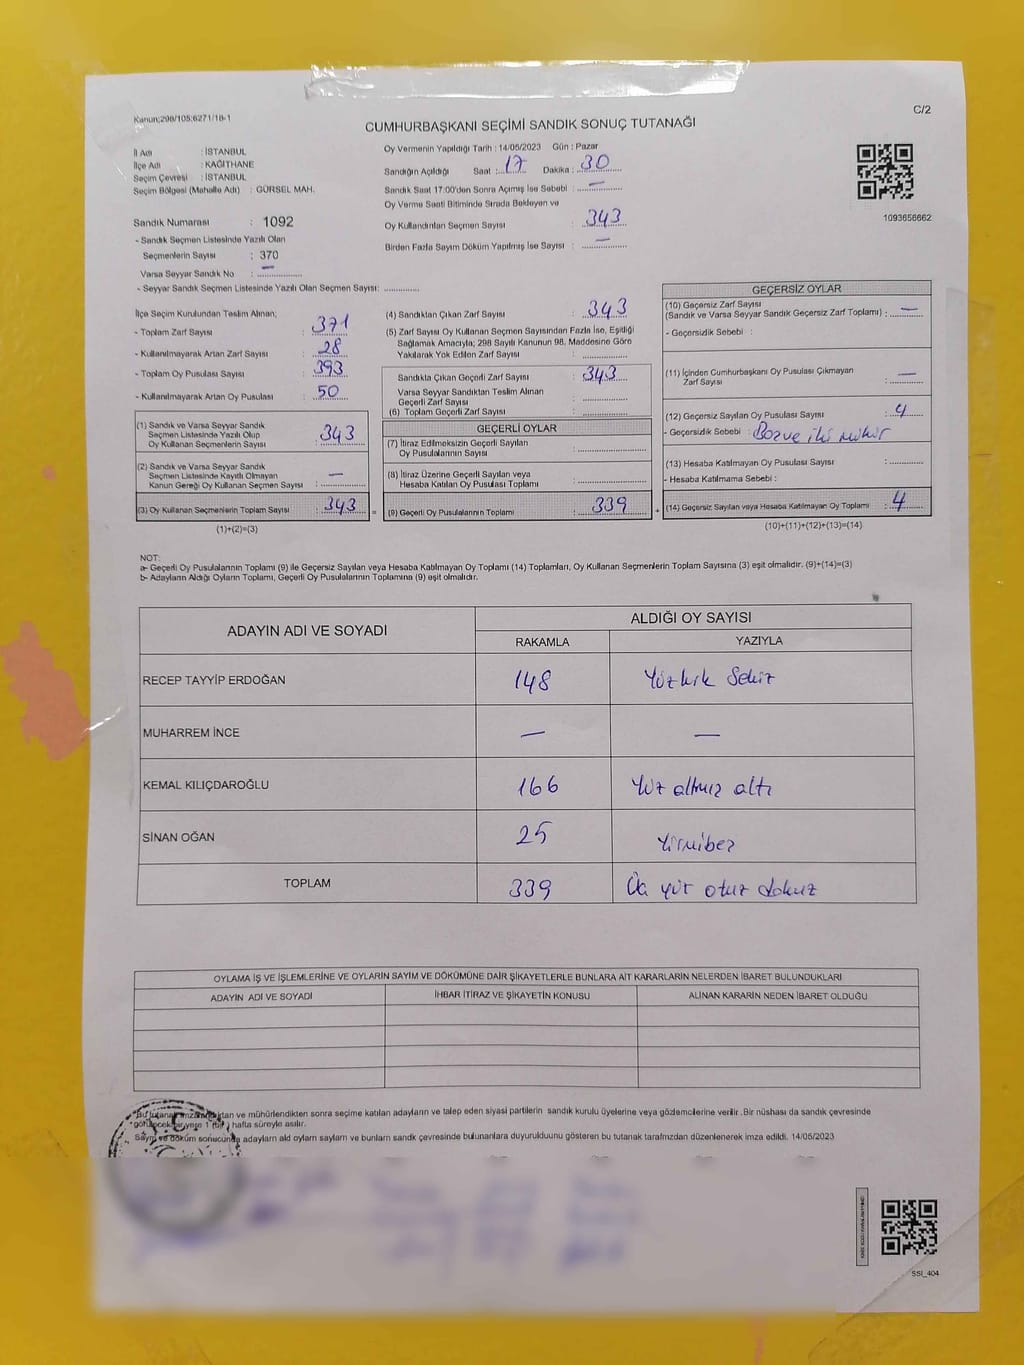 Kanun;298/105;6271/18-1
C/2
CUMHURBAŞKANI SEÇİMİ SANDIK SONUÇ TUTANAĞI
İl Adı : İSTANBUL
İlçe Adı : KAĞITHANE
Seçim Çevresi : İSTANBUL
Seçim Bölgesi (Mahalle Adı) : GÜRSEL MAH.
Sandık Numarası : 1092
- Sandık Seçmen Listesinde Yazılı Olan
Seçmenlerin Sayısı : 370
Varsa Seyyar Sandık No : —
- Seyyar Sandık Seçmen Listesinde Yazılı Olan Seçmen Sayısı:
Oy Vermenin Yapıldığı Tarih : 14/05/2023 Gün : Pazar
Sandığın Açıldığı Saat : 17 Dakika : 30
Sandık Saat 17:00'den Sonra Açılmış İse Sebebi : —
Oy Verme Saati Bitiminde Sırada Bekleyen ve
Oy Kullandırılan Seçmen Sayısı : 343
Birden Fazla Sayım Döküm Yapılmış İse Sayısı : —
1093656662
İlçe Seçim Kurulundan Teslim Alınan;
- Toplam Zarf Sayısı : 371
- Kullanılmayarak Artan Zarf Sayısı : 28
- Toplam Oy Pusulası Sayısı : 393
- Kullanılmayarak Artan Oy Pusulası : 50
(1) Sandık ve Varsa Seyyar Sandık
Seçmen Listesinde Yazılı Olup
Oy Kullanan Seçmenlerin Sayısı : 343
(2) Sandık ve Varsa Seyyar Sandık
Seçmen Listesinde Kayıtlı Olmayan
Kanun Gereği Oy Kullanan Seçmen Sayısı : —
(3) Oy Kullanan Seçmenlerin Toplam Sayısı : 343
(1)+(2)=(3)
(4) Sandıktan Çıkan Zarf Sayısı : 343
(5) Zarf Sayısı Oy Kullanan Seçmen Sayısından Fazla İse, Eşitliği
Sağlamak Amacıyla; 298 Sayılı Kanunun 98. Maddesine Göre
Yakılarak Yok Edilen Zarf Sayısı :
Sandıkta Çıkan Geçerli Zarf Sayısı : 343
Varsa Seyyar Sandıktan Teslim Alınan
Geçerli Zarf Sayısı :
(6) Toplam Geçerli Zarf Sayısı :
GEÇERLİ OYLAR
(7) İtiraz Edilmeksizin Geçerli Sayılan
Oy Pusulalarının Sayısı :
(8) İtiraz Üzerine Geçerli Sayılan veya
Hesaba Katılan Oy Pusulası Toplamı :
=
(9) Geçerli Oy Pusulalarının Toplamı : 339
+
GEÇERSİZ OYLAR
(10) Geçersiz Zarf Sayısı
(Sandık ve Varsa Seyyar Sandık Geçersiz Zarf Toplamı) : —
- Geçersizlik Sebebi :
(11) İçinden Cumhurbaşkanı Oy Pusulası Çıkmayan
Zarf Sayısı : —
(12) Geçersiz Sayılan Oy Pusulası Sayısı : 4
- Geçersizlik Sebebi : Boş ve iki mühür
(13) Hesaba Katılmayan Oy Pusulası Sayısı :
- Hesaba Katılmama Sebebi :
(14) Geçersiz Sayılan veya Hesaba Katılmayan Oy Toplamı : 4
(10)+(11)+(12)+(13)=(14)
NOT:
a- Geçerli Oy Pusulalarının Toplamı (9) ile Geçersiz Sayılan veya Hesaba Katılmayan Oy Toplamı (14) Toplamları, Oy Kullanan Seçmenlerin Toplam Sayısına (3) eşit olmalıdır. (9)+(14)=(3)
b- Adayların Aldığı Oyların Toplamı, Geçerli Oy Pusulalarının Toplamına (9) eşit olmalıdır.
ADAYIN ADI VE SOYADI
ALDIĞI OY SAYISI
RAKAMLA YAZIYLA
RECEP TAYYİP ERDOĞAN 148 Yüzkırk Sekiz
MUHARREM İNCE — —
KEMAL KILIÇDAROĞLU 166 Yüz altmış altı
SİNAN OĞAN 25 Yirmibeş
TOPLAM 339 Üç yüz otuz dokuz
OYLAMA İŞ VE İŞLEMLERİNE VE OYLARIN SAYIM VE DÖKÜMÜNE DAİR ŞİKAYETLERLE BUNLARA AİT KARARLARIN NELERDEN İBARET BULUNDUKLARI
ADAYIN ADI VE SOYADI İHBAR İTİRAZ VE ŞİKAYETİN KONUSU ALINAN KARARIN NEDEN İBARET OLDUĞU
Bu tutanak ve mühürlendikten sonra seçime katılan adayların ve talep eden siyasi partilerin sandık kurulu üyelerine veya gözlemcilerine verilir. Bir nüshası da sandık çevresinde
hafta süreyle asılır.
Sayım ve döküm sonucunda adayların ald oyların sayların ve bunların sandık çevresinde bulunanlara duyurulduunu gösteren bu tutanak tarafmzdan düzenlenerek imza edildi. 14/05/2023
T.C.
SSİ_404